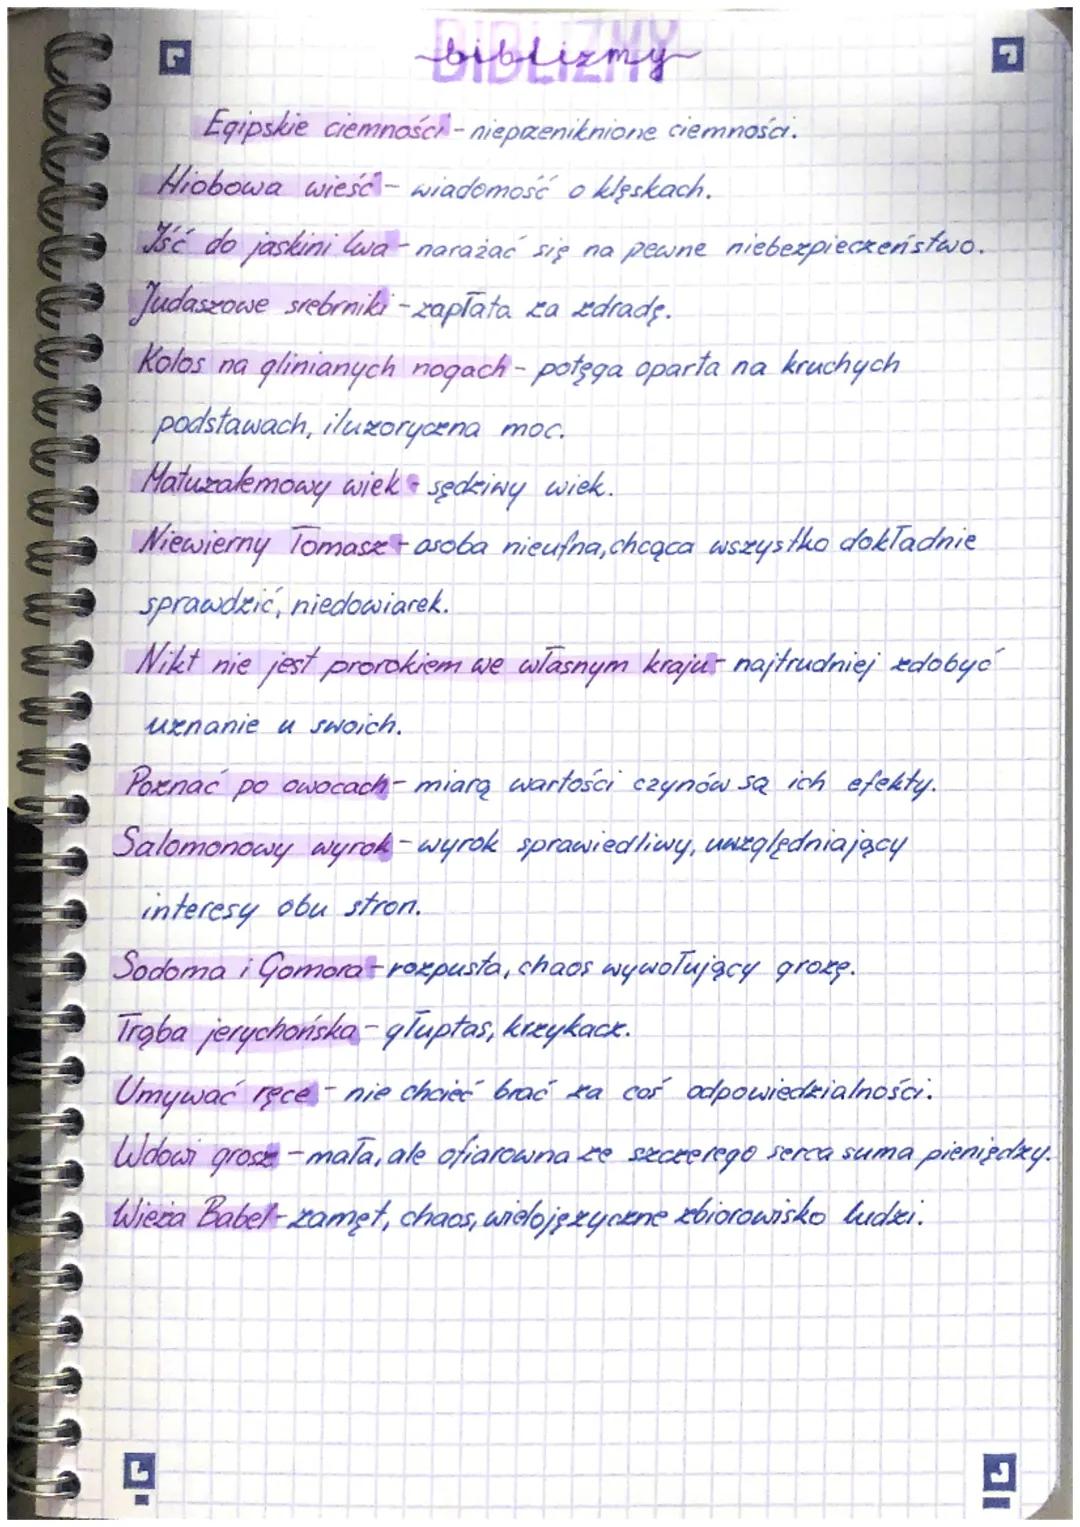 BIBLIZMY
biblizmy
Egipskie ciemności - nieprzeniknione ciemności.
Hiobowa wieść - wiadomość o klęskach.
Iść do jaskini lwa - narażać się na pewne niebezpieczeństwo.
Judaszowe srebrniki - zapłata za zdradę.
Kolos na glinianych nogach - potęga oparta na kruchych
podstawach, iluzoryczna moc.
Matuzalemowy wiek - sędziwy wiek.
Niewierny Tomasz - osoba nieufna, chcąca wszystko dokładnie
sprawdzić, niedowiarek.
Nikt nie jest prorokiem we własnym kraju - najtrudniej zdobyć
uznanie u swoich.
Poznać po owocach - miarą wartości czynów są ich efekty.
Salomonowy wyrok - wyrok sprawiedliwy, uwzględniający
interesy obu stron.
Sodoma i Gomora - rozpusta, chaos wywołujący grozę.
Trąba jerychońska - głuptas, krzykacz.
Umywać ręce - nie chcieć brać za coś odpowiedzialności.
Wdowi grosz - mała, ale ofiarowna ze szczerego serca suma pieniędzy.
Wieża Babel - zamęt, chaos, wielojęzyczne zbiorowisko ludzi.